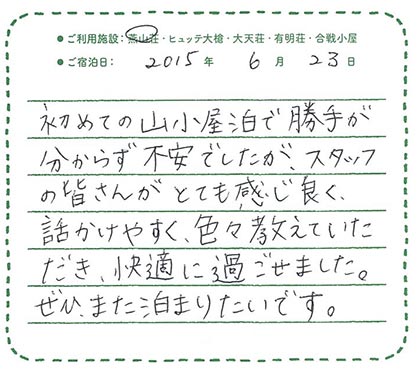 ● ご利用施設：燕山荘・ヒュッテ大槍・大天荘・有明荘・合戦小屋
● ご宿泊日： 2015 年 6 月 23 日
初めての山小屋泊で勝手が
分からず不安でしたが、スタッフ
の皆さんがとても感じ良く、
話かけやすく、色々教えていた
だき、快適に過ごせました。
ぜひまた泊まりたいです。